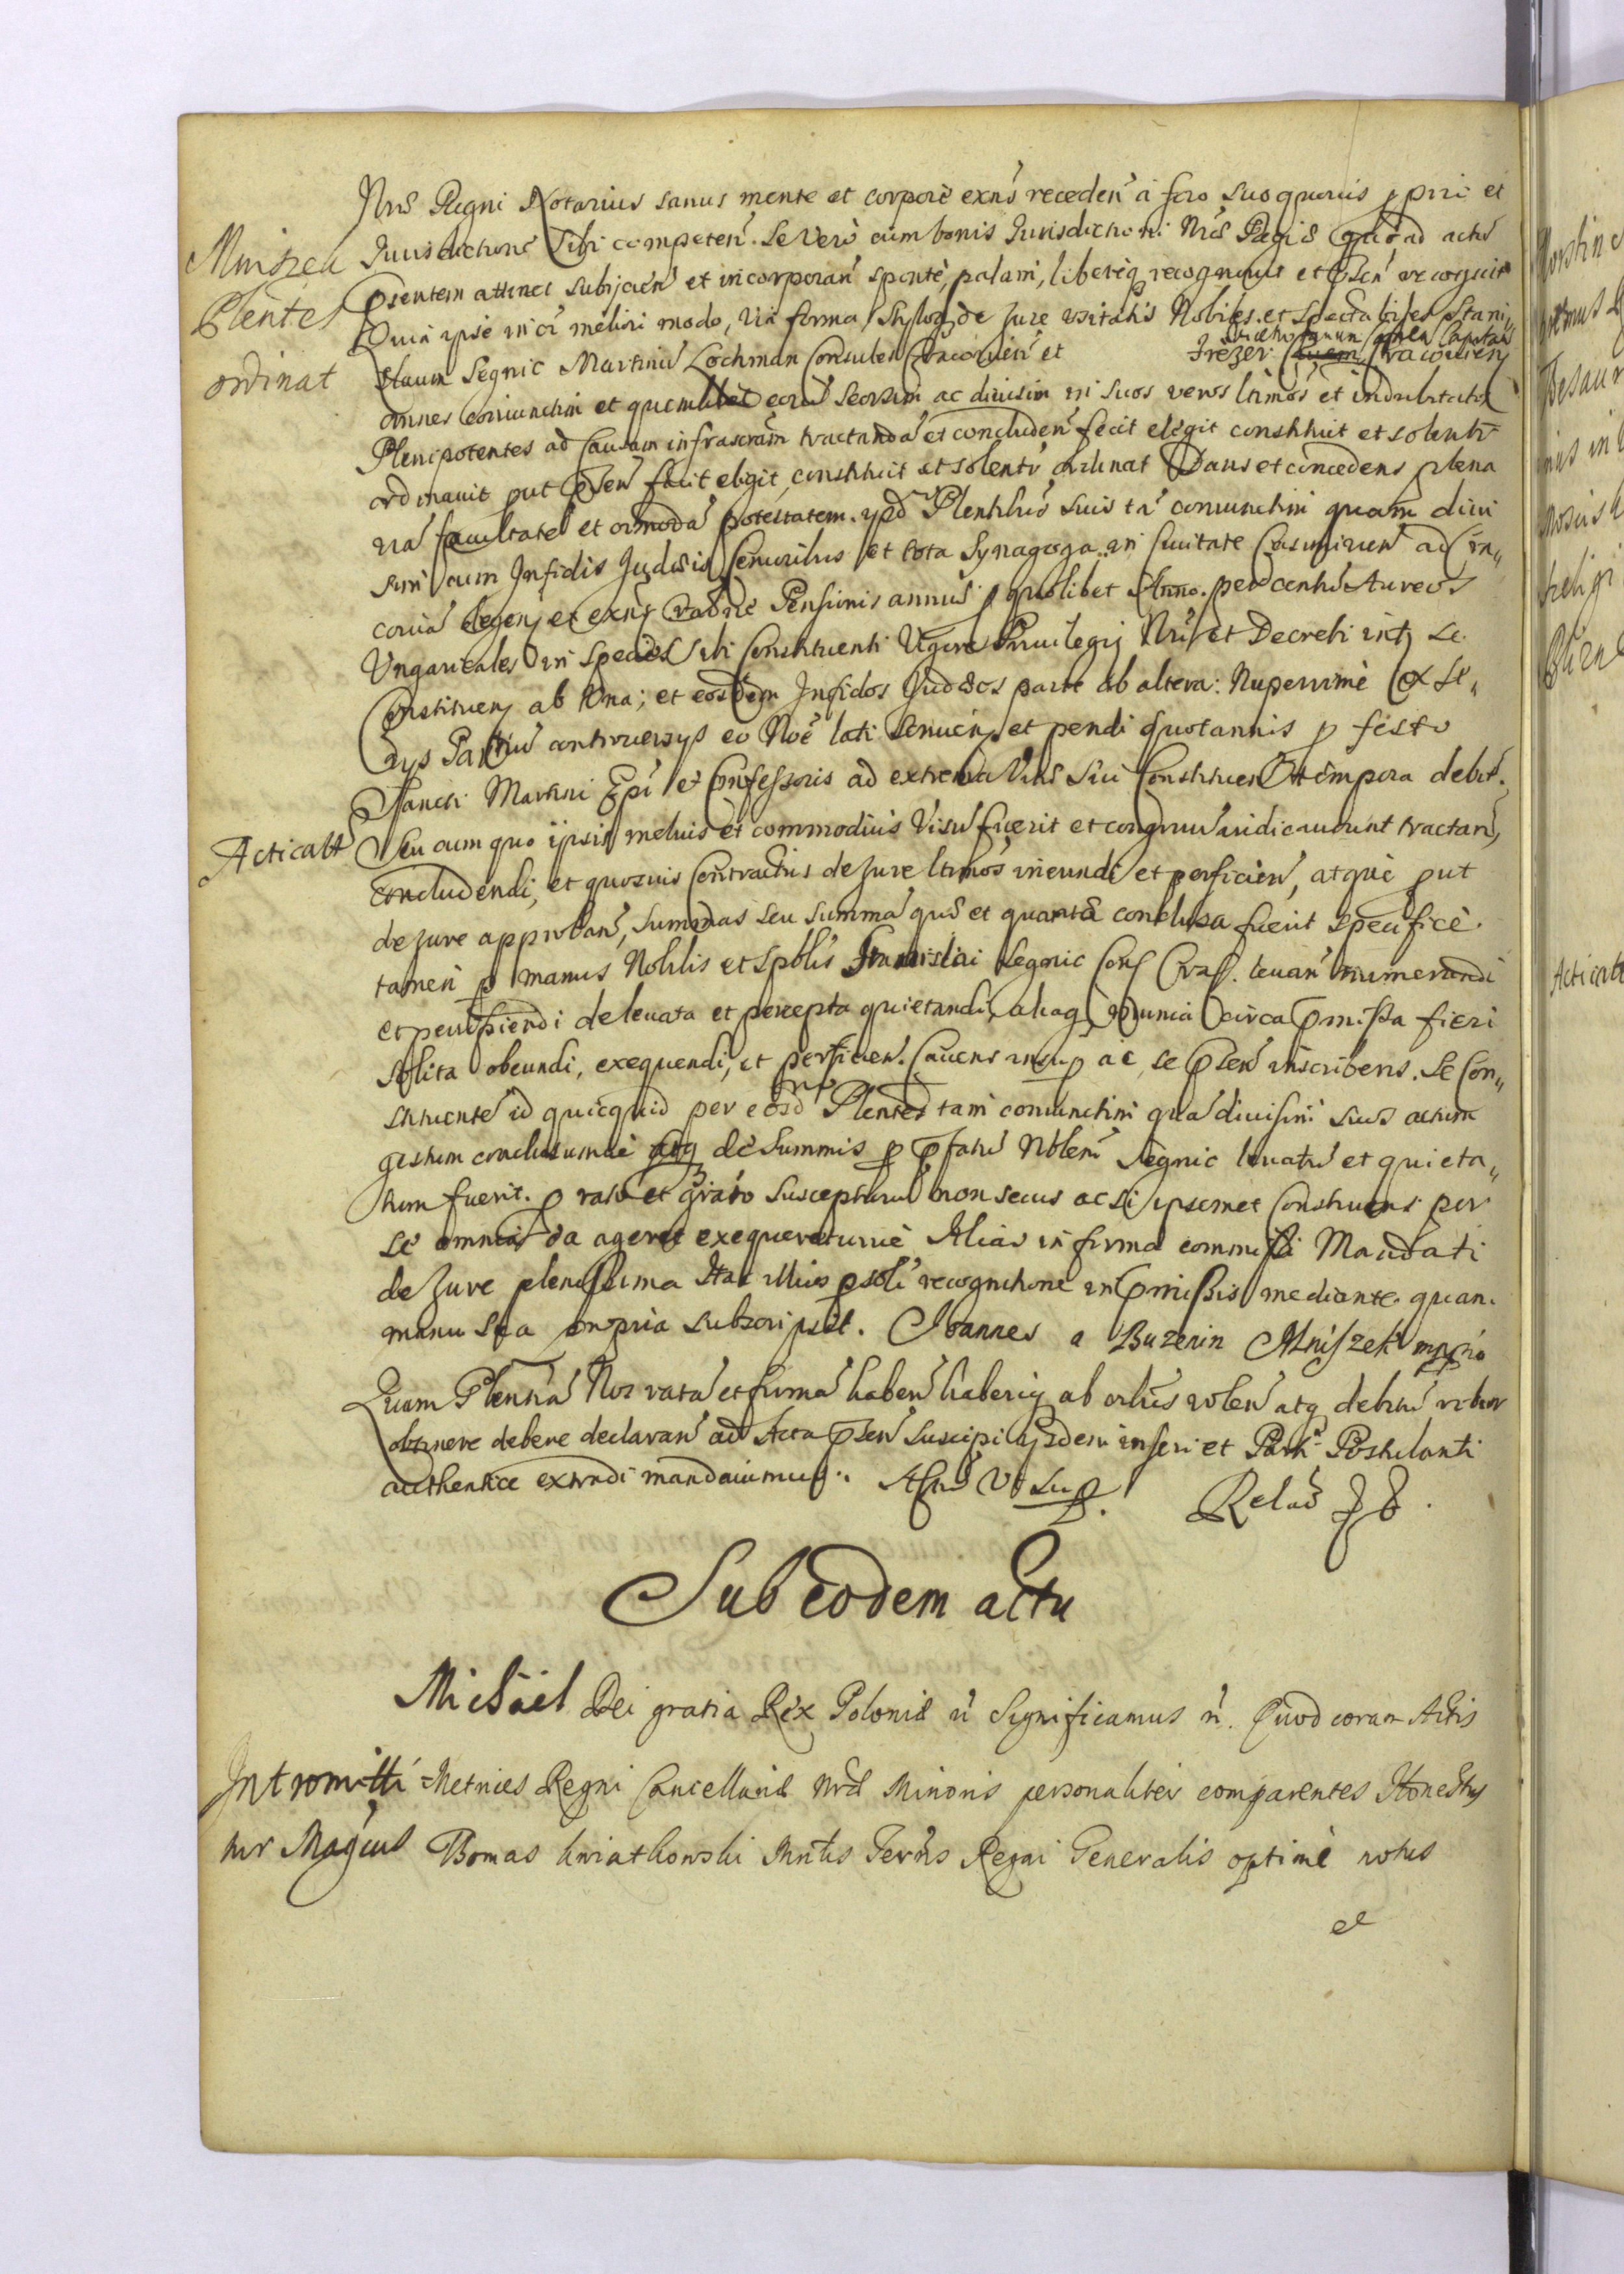 Nrae Regni Notarius sanus mente et corpore exns receden a foro suo quouis ppri et
Mniszek
Jurisdictione sibi competen. Se vero cum bonis Jurisdictioni Nrae Regiae quo ad actu
Plentes
psentem attinet subijcien et incorporan sponte, palam, libereq recognouit et psen recognit
ordinat
Quia ipse in oi meliori modo, via forma, styloq de Jure usitatis Nobiles et Spectabiles Stani„
slaum Segnic Martinu Lochman Consulen Cracovien et Frezer Cracovien
omnes coniunctim et quemlibet eoru seorsim ac divisim in suos veros ltimos et indubitatos
Plenipotentes ad Causam infrascram tractanda et concluden fecit elegit constituit et solentr
ordinavit put psen facit eligit, constituit et solentr ordinat Dans et concedens plena
ria facultate et omnoda potestatem ypd Plentibus suis ta coniunctim quam divi
sim cum Infidis Judaeis Senioribus et tota Synagoga in Civitate Casimirien ad Cra„
covia degen et exn raone Pensionis annue p quolibet Anno centu Aureos
Ungaricales in specie sibi Constituenti vigore Privilegij Nri et Decreti inter se
Constituen ab Una; et eosdem Infidos Judaeos parte ab altera: Nuperrime ex
Partiu controuersys eo Noe lati et pendi quotannis p festo
Sancti Martini Epi et Confessoris ad extrema Vitae sui Constituen tempora debit.
Acticatt
Seu cum quo ipsis melius et commodius visu fuerit et congruu iudicauerunt tractan,
Concludendi, et quosuis Contractus de Jure ltimos ineundi et perficien, atque put
de Jure approban, summas seu summa quae et quanta conclusa fuerit specifice.
tamen p manus Nobilis et Spblis Stanislai Segnic Cons Crac. leuan numerandi
et percipiendi de leuata et percepta quietandi, aliaq omnia circa pmissa fieri
solita obeundi, exequendi, et perficien. Cauens insup ac se psen inscribens. Se Con„
stituente id quicquid per eosd Plentes tam coniunctim qua divisim suis actum
gestum conclusumue atq de summis p pfatu Nblem Segnic levatu et quieta„
tum fuerit. p rato et grato suscepturu non secus ac si ipsemet Constituens per
se omnia ea ageret exequereturue Alias in forma commissi Mandati
de Jure plenissima Stae illius psoli recognitione in pmissis mediante. quam.
manu sua propria subscripsit. Joannes a Buzenin Mniszek mppo
Quam Plentia Nos rata et firma haben haberiq ab oibus volen atq debitu robur
obtinere debere declaran ad Acta psen suscipi ysdem inseri et Parti Postulanti
authentice extradi mandavimus. Actu Ut Sup.
Relao J B.
Sub eodem actu
Michael Dei gratia Rex Poloniae & Significamus &. Quod coram Actis
Intromitti
Metrices Regni Cancellariae Nrae Minoris personaliter comparentes Honestus
tur Magcus
Thomas Kwiatkowski Mntlis Terris Regni Generalis optime notus
et